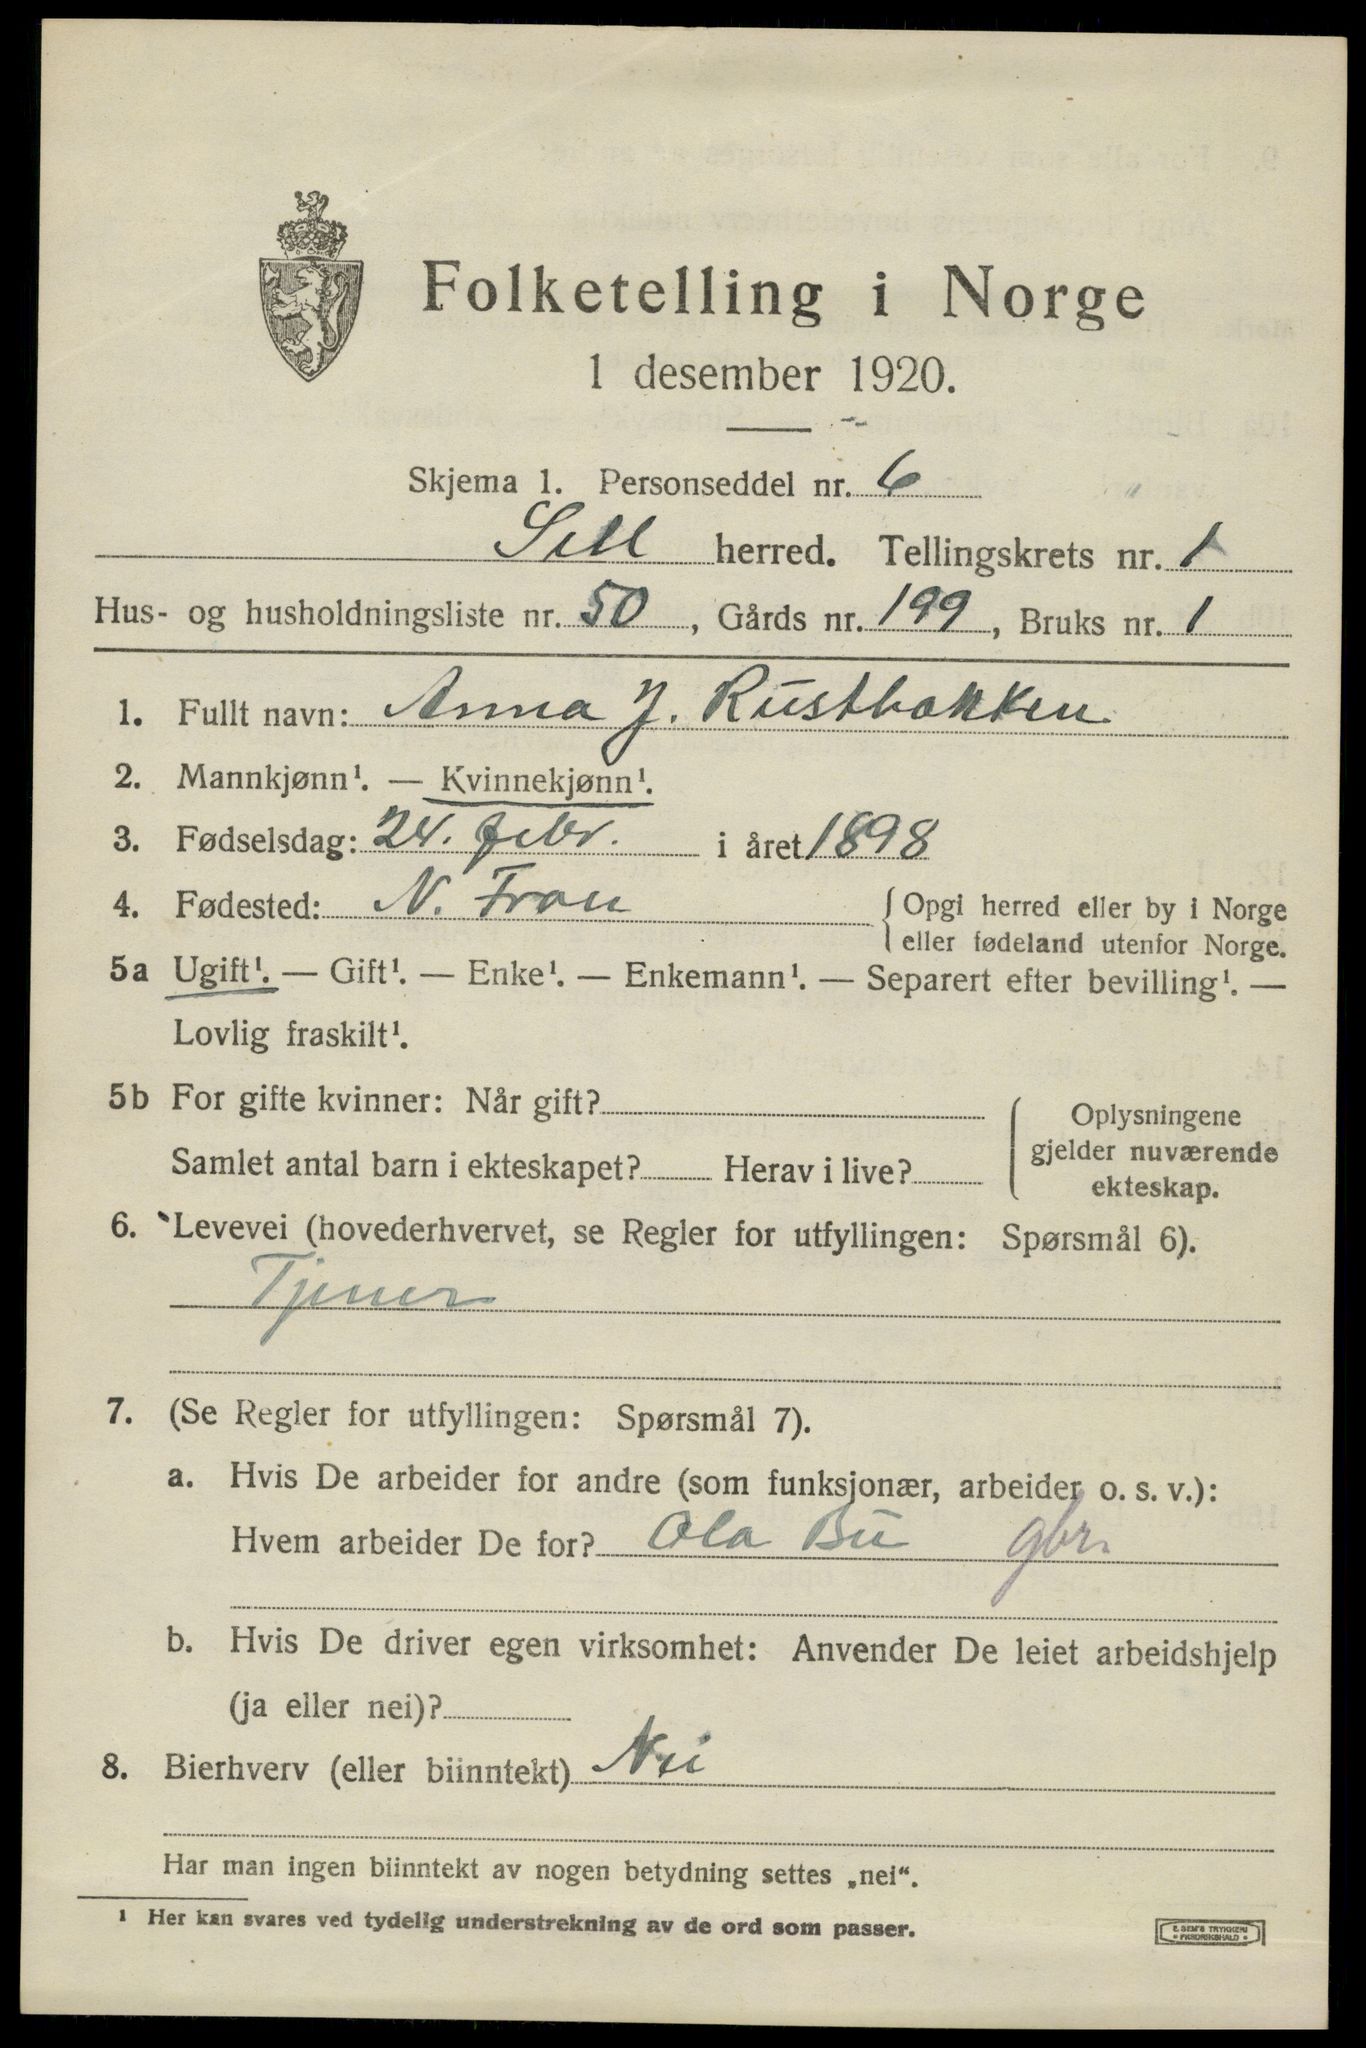 Folketelling i Norge
1 desember 1920.
Skjema 1. Personseddel nr. 6
Sell herred. Tellingskrets nr. 1
Hus- og husholdningsliste nr. 50, Gårds nr. 199, Bruks nr. 1
1. Fullt navn: Anna J. Rustbakken
2. Mannkjønn¹. — Kvinnekjønn¹.
3. Fødselsdag: 24. febr. i året 1898
4. Fødested: N. Fron { Opgi herred eller by i Norge
eller fødeland utenfor Norge.
5a Ugift¹. — Gift¹. — Enke¹. — Enkemann¹. — Separert efter bevilling¹. —
Lovlig fraskilt¹.
5b For gifte kvinner: Når gift? Oplysningene
gjelder nuværende
Samlet antal barn i ekteskapet? Herav i live?
ekteskap.
6. Levevei (hovederhvervet, se Regler for utfyllingen: Spørsmål 6).
Tjener
7. (Se Regler for utfyllingen: Spørsmål 7).
a. Hvis De arbeider for andre (som funksjonær, arbeider o. s. v.):
Hvem arbeider De for? Ola Bu gbr.
b. Hvis De driver egen virksomhet: Anvender De leiet arbeidshjelp
(ja eller nei)?
8. Bierhverv (eller biinntekt) Nei
Har man ingen biinntekt av nogen betydning settes „nei“.
¹ Her kan svares ved tydelig understrekning av de ord som passer.
E. SEM'S TRYKKERI
• FREDRIKSHALD •